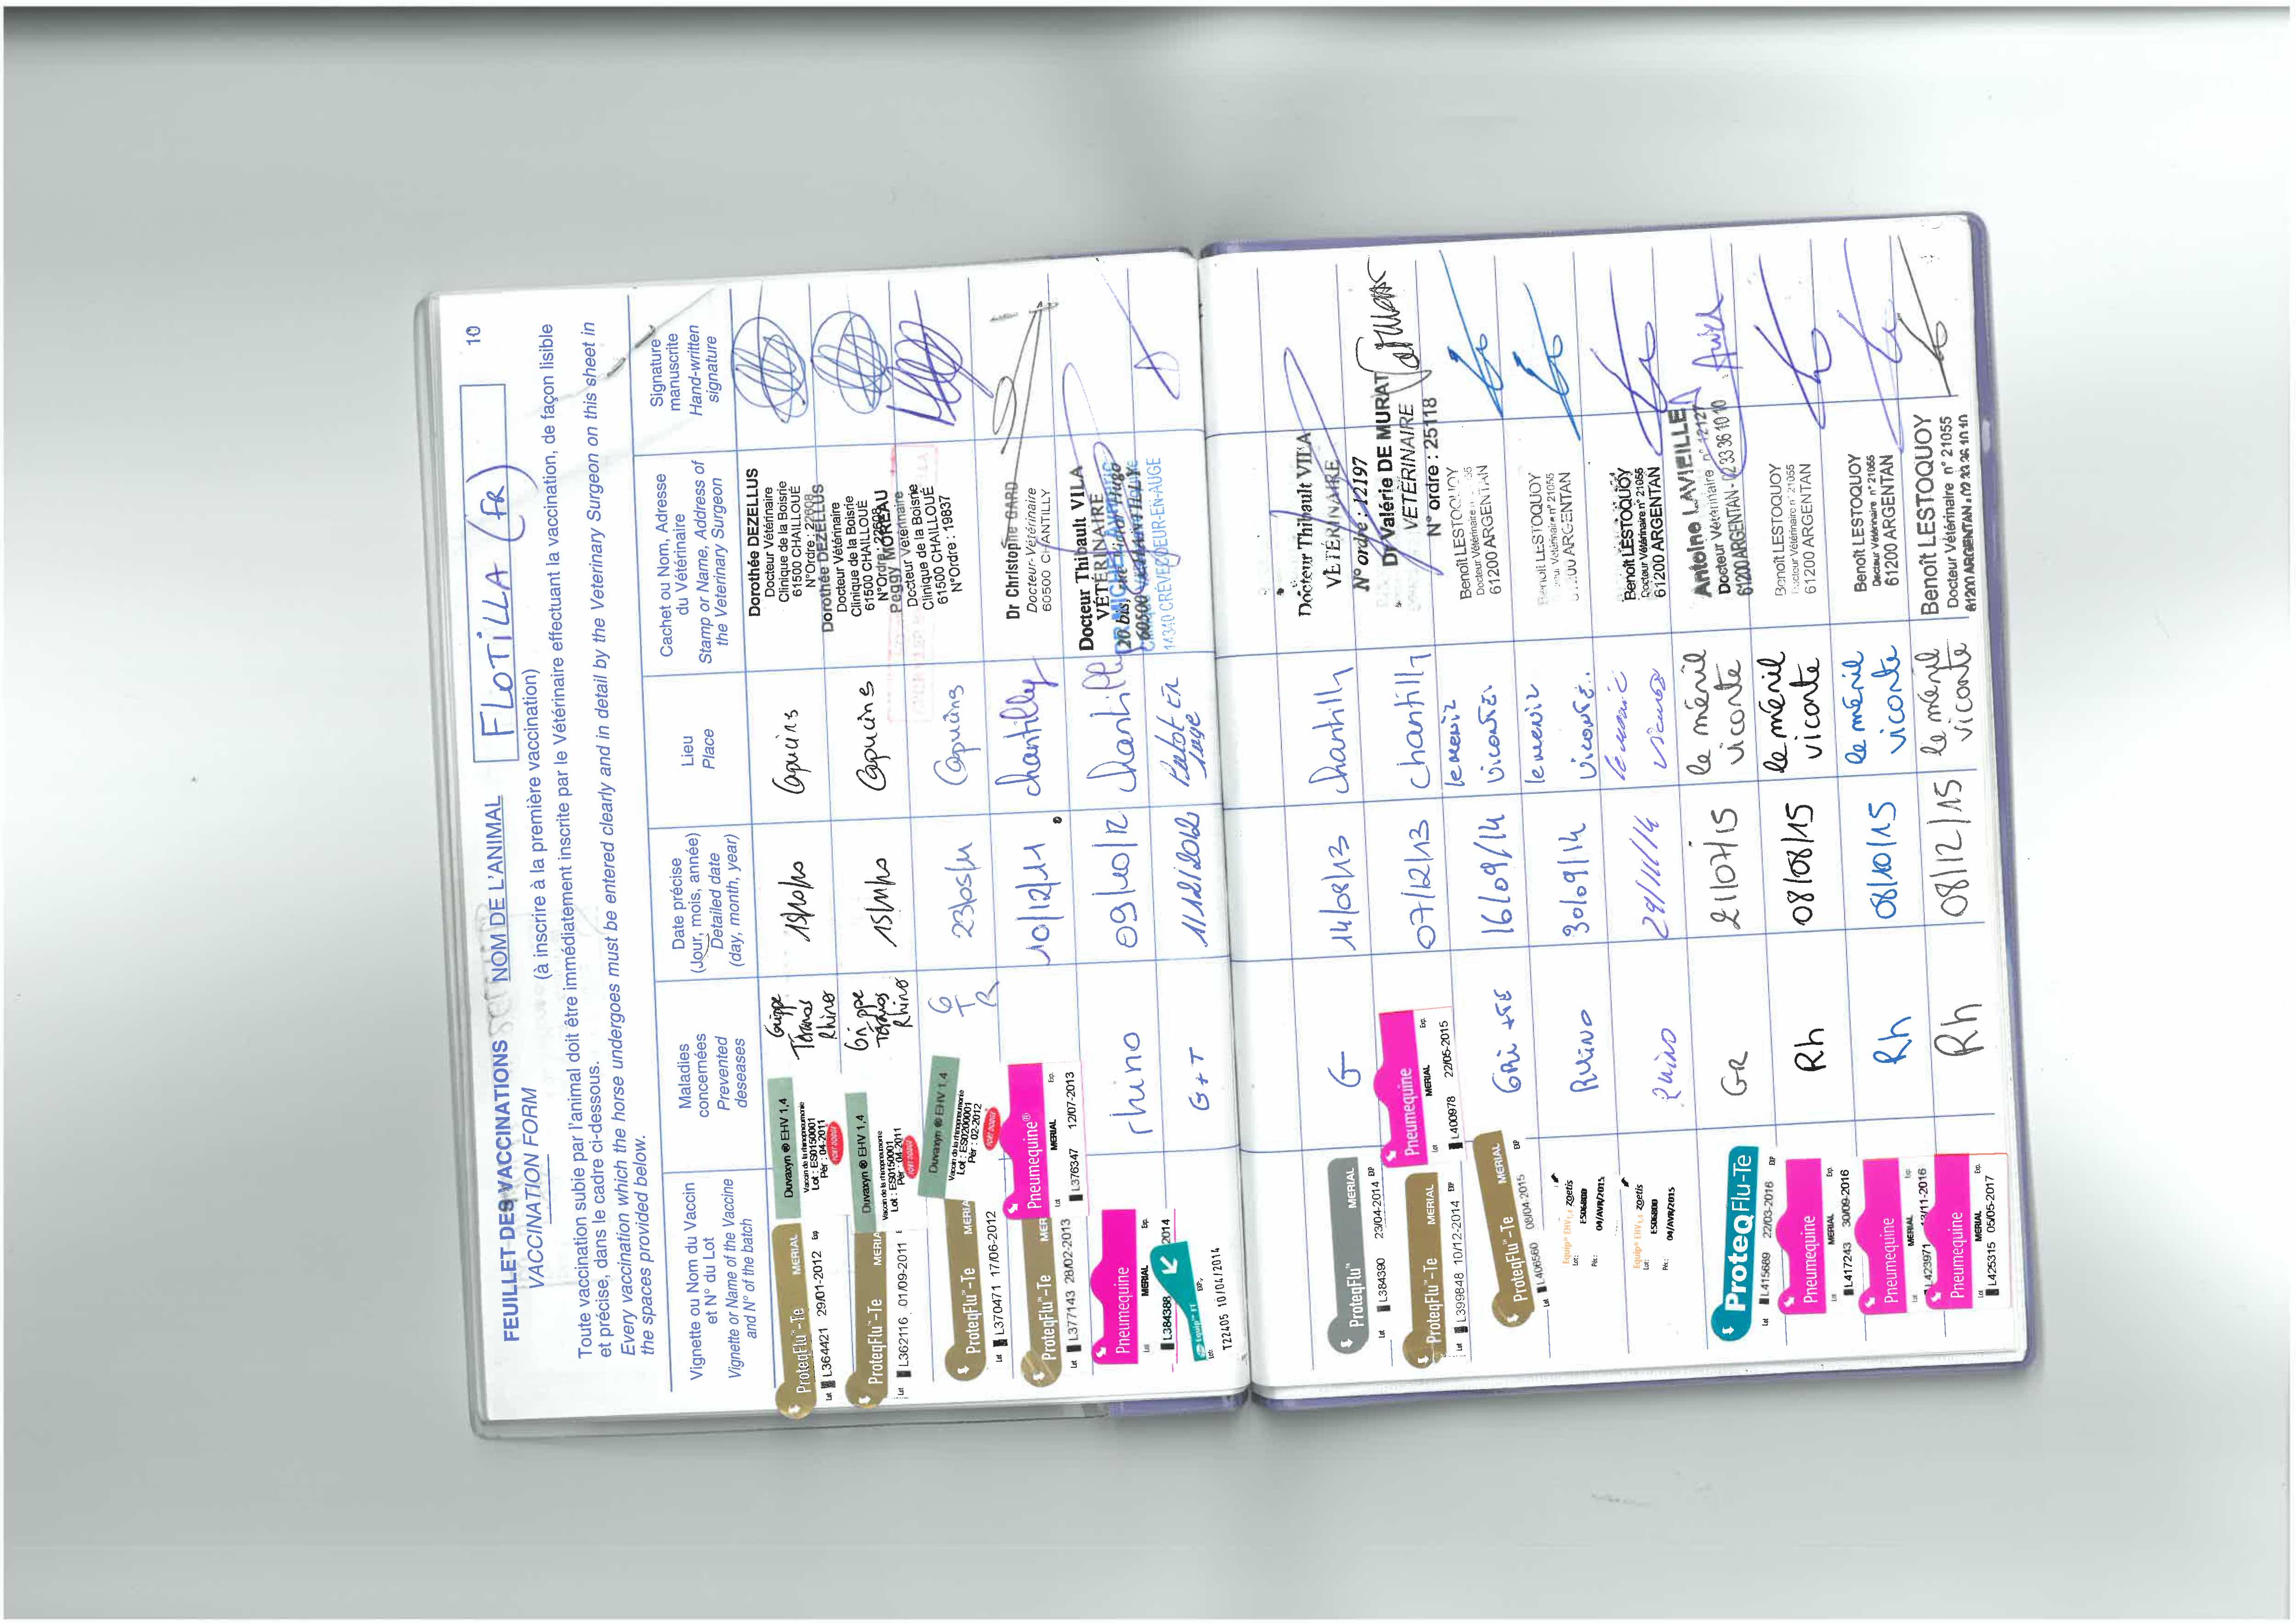 10
FEUILLET DES VACCINATIONS NOM DE L'ANIMAL FLOTILLA (FR)
VACCINATION FORM (à inscrire à la première vaccination)
Toute vaccination subie par l'animal doit être immédiatement inscrite par le Vétérinaire effectuant la vaccination, de façon lisible
et précise, dans le cadre ci-dessous.
Every vaccination which the horse undergoes must be entered clearly and in detail by the Veterinary Surgeon on this sheet in
the spaces provided below.
Vignette ou Nom du Vaccin
et N° du Lot
Vignette or Name of the Vaccine
and N° of the batch
Maladies
concernées
Prevented
deseases
Date précise
(Jour, mois, année)
Detailed date
(day, month, year)
Lieu
Place
Cachet ou Nom, Adresse
du Vétérinaire
Stamp or Name, Address of
the Veterinary Surgeon
Signature
manuscrite
Hand-written
signature
ProteqFlu™-Te MERIAL
Lot L364421 29/01-2012 Exp
Duvaxyn ® EHV 1,4
Vaccin de la rhinopneumonie
Lot : ES0150001
Pér : 04-2011
FORT DODGE
Grippe
Tétanos
Rhino
15/10/10
Capucins
Dorothée DEZELLUS
Docteur Vétérinaire
Clinique de la Boisrie
61500 CHAILLOUÉ
N°Ordre : 22608
ProteqFlu™-Te MERIA
Lot L362116 01/09-2011
Duvaxyn ® EHV 1,4
Vaccin de la rhinopneumonie
Lot : ES0150001
Pér : 04-2011
FORT DODGE
Grippe
Tétanos
Rhino
15/11/10
Capucins
Dorothée DEZELLUS
Docteur Vétérinaire
Clinique de la Boisrie
61500 CHAILLOUÉ
N°Ordre : 22608
ProteqFlu™-Te MERIA
Lot L370471 17/06-2012
Duvaxyn ® EHV 1,4
Vaccin de la rhinopneumonie
Lot : ES0200001
Pér : 02-2012
FORT DODGE
G
T
R
23/05/11
Capucins
Peggy MOREAU
Docteur Vétérinaire
Clinique de la Boisrie
61500 CHAILLOUÉ
N°Ordre : 19837
ProteqFlu™-Te MER
Lot L377143 28/02-2013
Pneumequine®
MERIAL
Lot L376347 12/07-2013 Exp.
10/12/11
Chantilly
Dr Christophe GARD
Docteur-Vétérinaire
60500 CHANTILLY
Pneumequine
MERIAL
Lot L384388 2014 Exp.
rhino
09/10/12
Chantilly
Docteur Thibault VILA
VÉTÉRINAIRE
20 bis, rue Victor Hugo
60500 CHANTILLY
Equip™ FT
Lot: T22405 10/04/2014
G+T
11/12/2012
14340 CRÈVECOEUR-EN-AUGE
ProteqFlu™ MERIAL
Lot L384390 23/04-2014 EXP
G
14/08/13
Chantilly
Docteur Thibault VILA
VÉTÉRINAIRE
N° ordre : 12197
ProteqFlu™-Te MERIAL
Lot L399848 10/12-2014 EXP
Pneumequine
MERIAL
Lot L400978 22/05-2015 Exp.
07/12/13
Chantilly
Dr Valérie DE MURAT
VÉTÉRINAIRE
N° ordre : 25118
ProteqFlu™-Te MERIAL
Lot L406560 08/04-2015 EXP
16/09/14
Benoît LESTOQUOY
Docteur Vétérinaire
61200 ARGENTAN
Equip® EHV 1,4 zoetis
Lot: ES06800
Pér.: 04/AVR/2015
Rhino
30/09/14
Benoît LESTOQUOY
Docteur Vétérinaire n° 21055
61200 ARGENTAN
Equip® EHV 1,4 zoetis
Lot: ES06800
Pér.: 04/AVR/2015
Rhino
29/11/14
Benoît LESTOQUOY
Docteur Vétérinaire n° 21055
61200 ARGENTAN
ProteqFlu-Te
Lot L415689 22/03-2016 EXP
GR
21/07/15
le ménil
vicomte
Antoine LAVIEILLE
Docteur Vétérinaire n° 12127
61200 ARGENTAN - 02 33 36 10 10
Pneumequine
MERIAL
Lot L417243 30/09-2016 Exp.
Rh
08/08/15
le ménil
vicomte
Benoît LESTOQUOY
Docteur Vétérinaire n° 21055
61200 ARGENTAN
Pneumequine
MERIAL
Lot L423971 13/11-2016 Exp.
Rh
08/10/15
le ménil
vicomte
Benoît LESTOQUOY
Docteur Vétérinaire n° 21055
61200 ARGENTAN
Pneumequine
MERIAL
Lot L425315 05/05-2017 Exp.
Rh
08/12/15
le ménil
vicomte
Benoît LESTOQUOY
Docteur Vétérinaire n° 21055
61200 ARGENTAN - 02 33 36 10 10